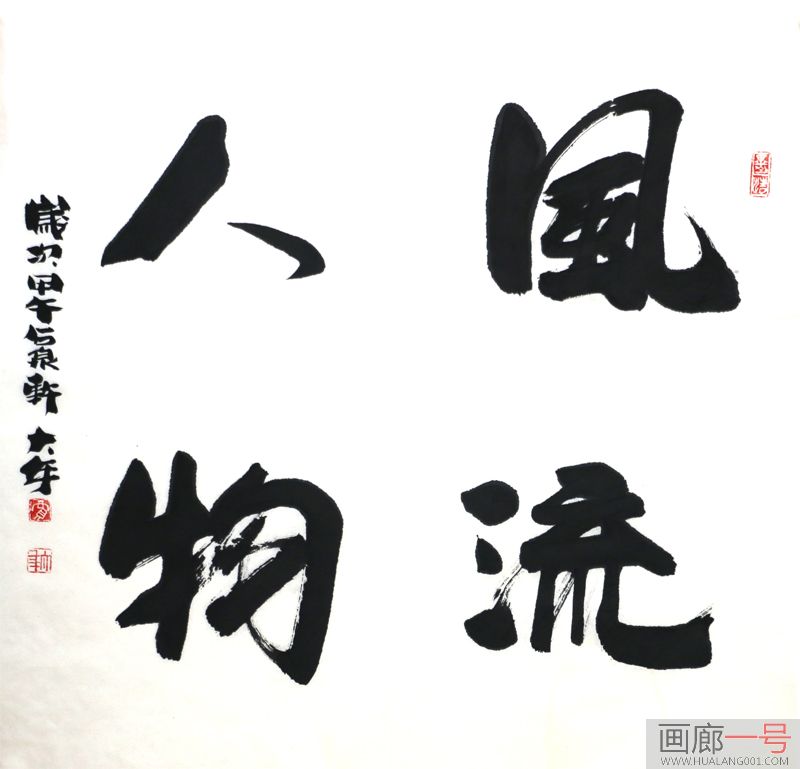 風流
人物
歲次甲午仁泉軒 大年
画廊一号
WWW.HUALANG001.COM